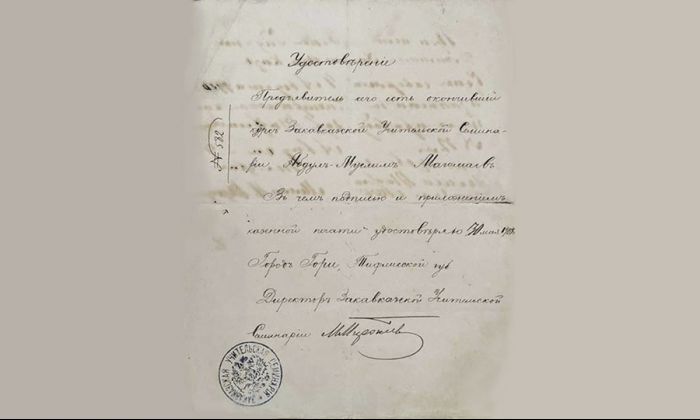 Удостовѣреніе
Предъявитель сего есть окончившій
№ 582
курсъ Закавказской Учительской Семина-
ріи Абдулъ-Муслимъ Магомаевъ
Въ чемъ подписью и приложеніемъ
казенной печати удостовѣряю 30 мая
Городъ Гори, Тифлисской губ
Директоръ Закавказской Учительской
Семинаріи
ЗАКАВКАЗСКАЯ УЧИТЕЛЬСКАЯ СЕМИНАРІЯ